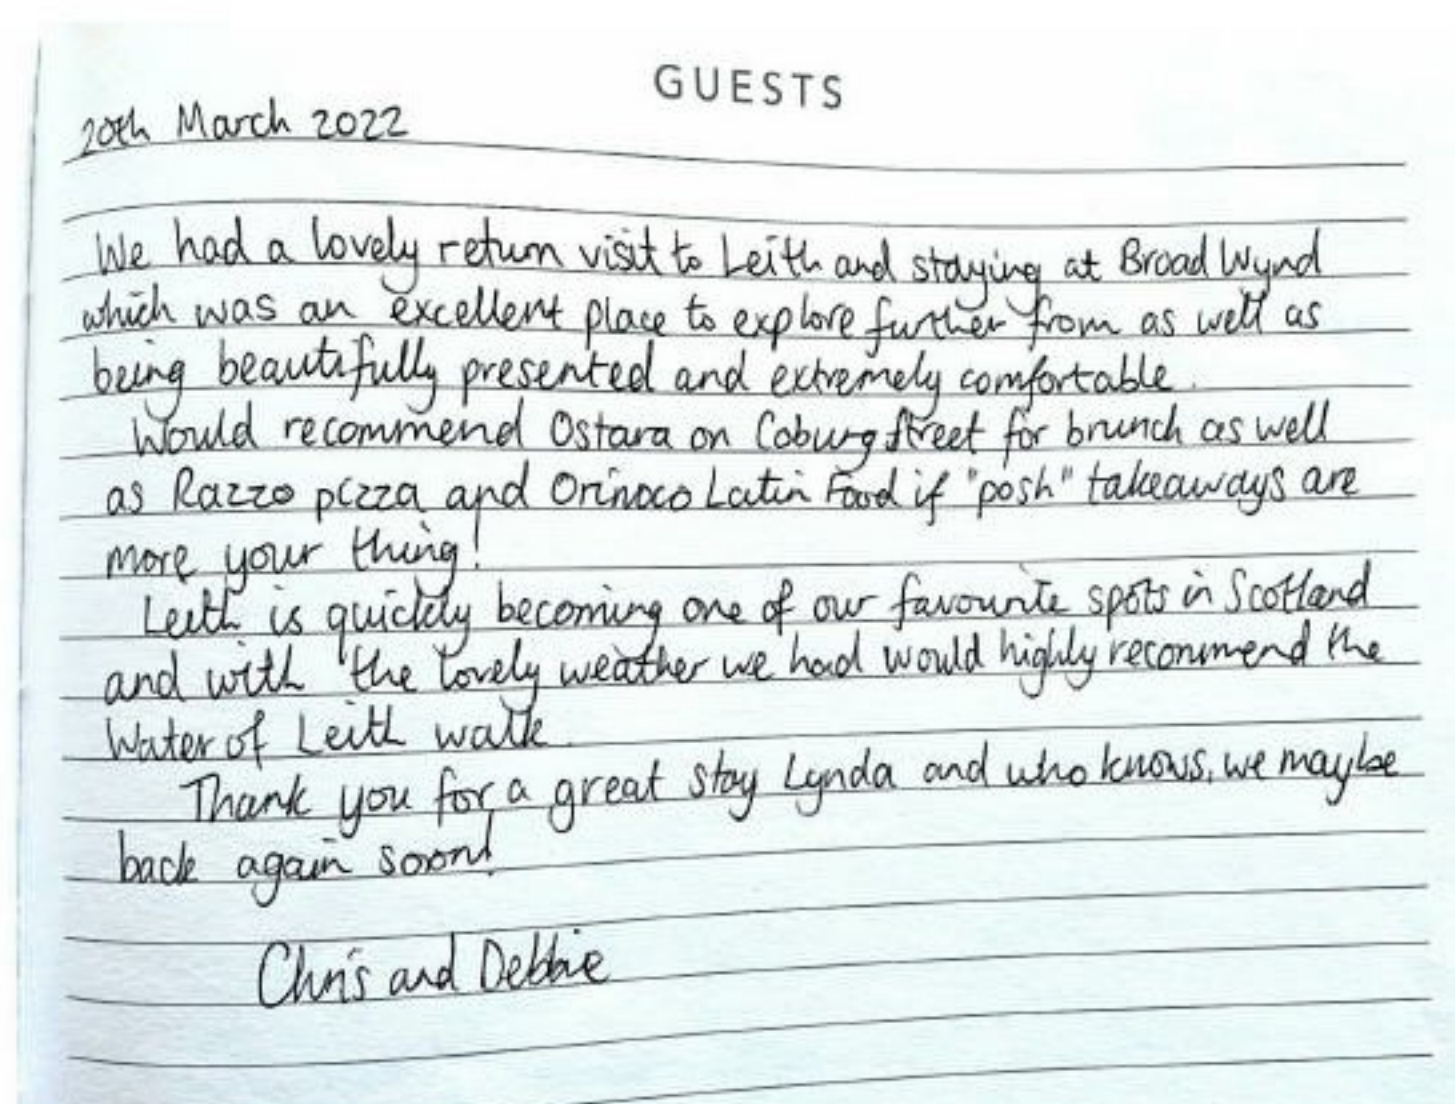 GUESTS
20th March 2022
We had a lovely return visit to Leith and staying at Broad Wynd
which was an excellent place to explore further from as well as
being beautifully presented and extremely comfortable.
Would recommend Ostara on Coburg Street for brunch as well
as Razzo pizza and Orinoco Latin Food if "posh" takeaways are
more your thing!
Leith is quickly becoming one of our favourite spots in Scotland
and with the lovely weather we had would highly recommend the
Water of Leith walk.
Thank you for a great stay Lynda and who knows, we maybe
back again soon!
Chris and Debbie